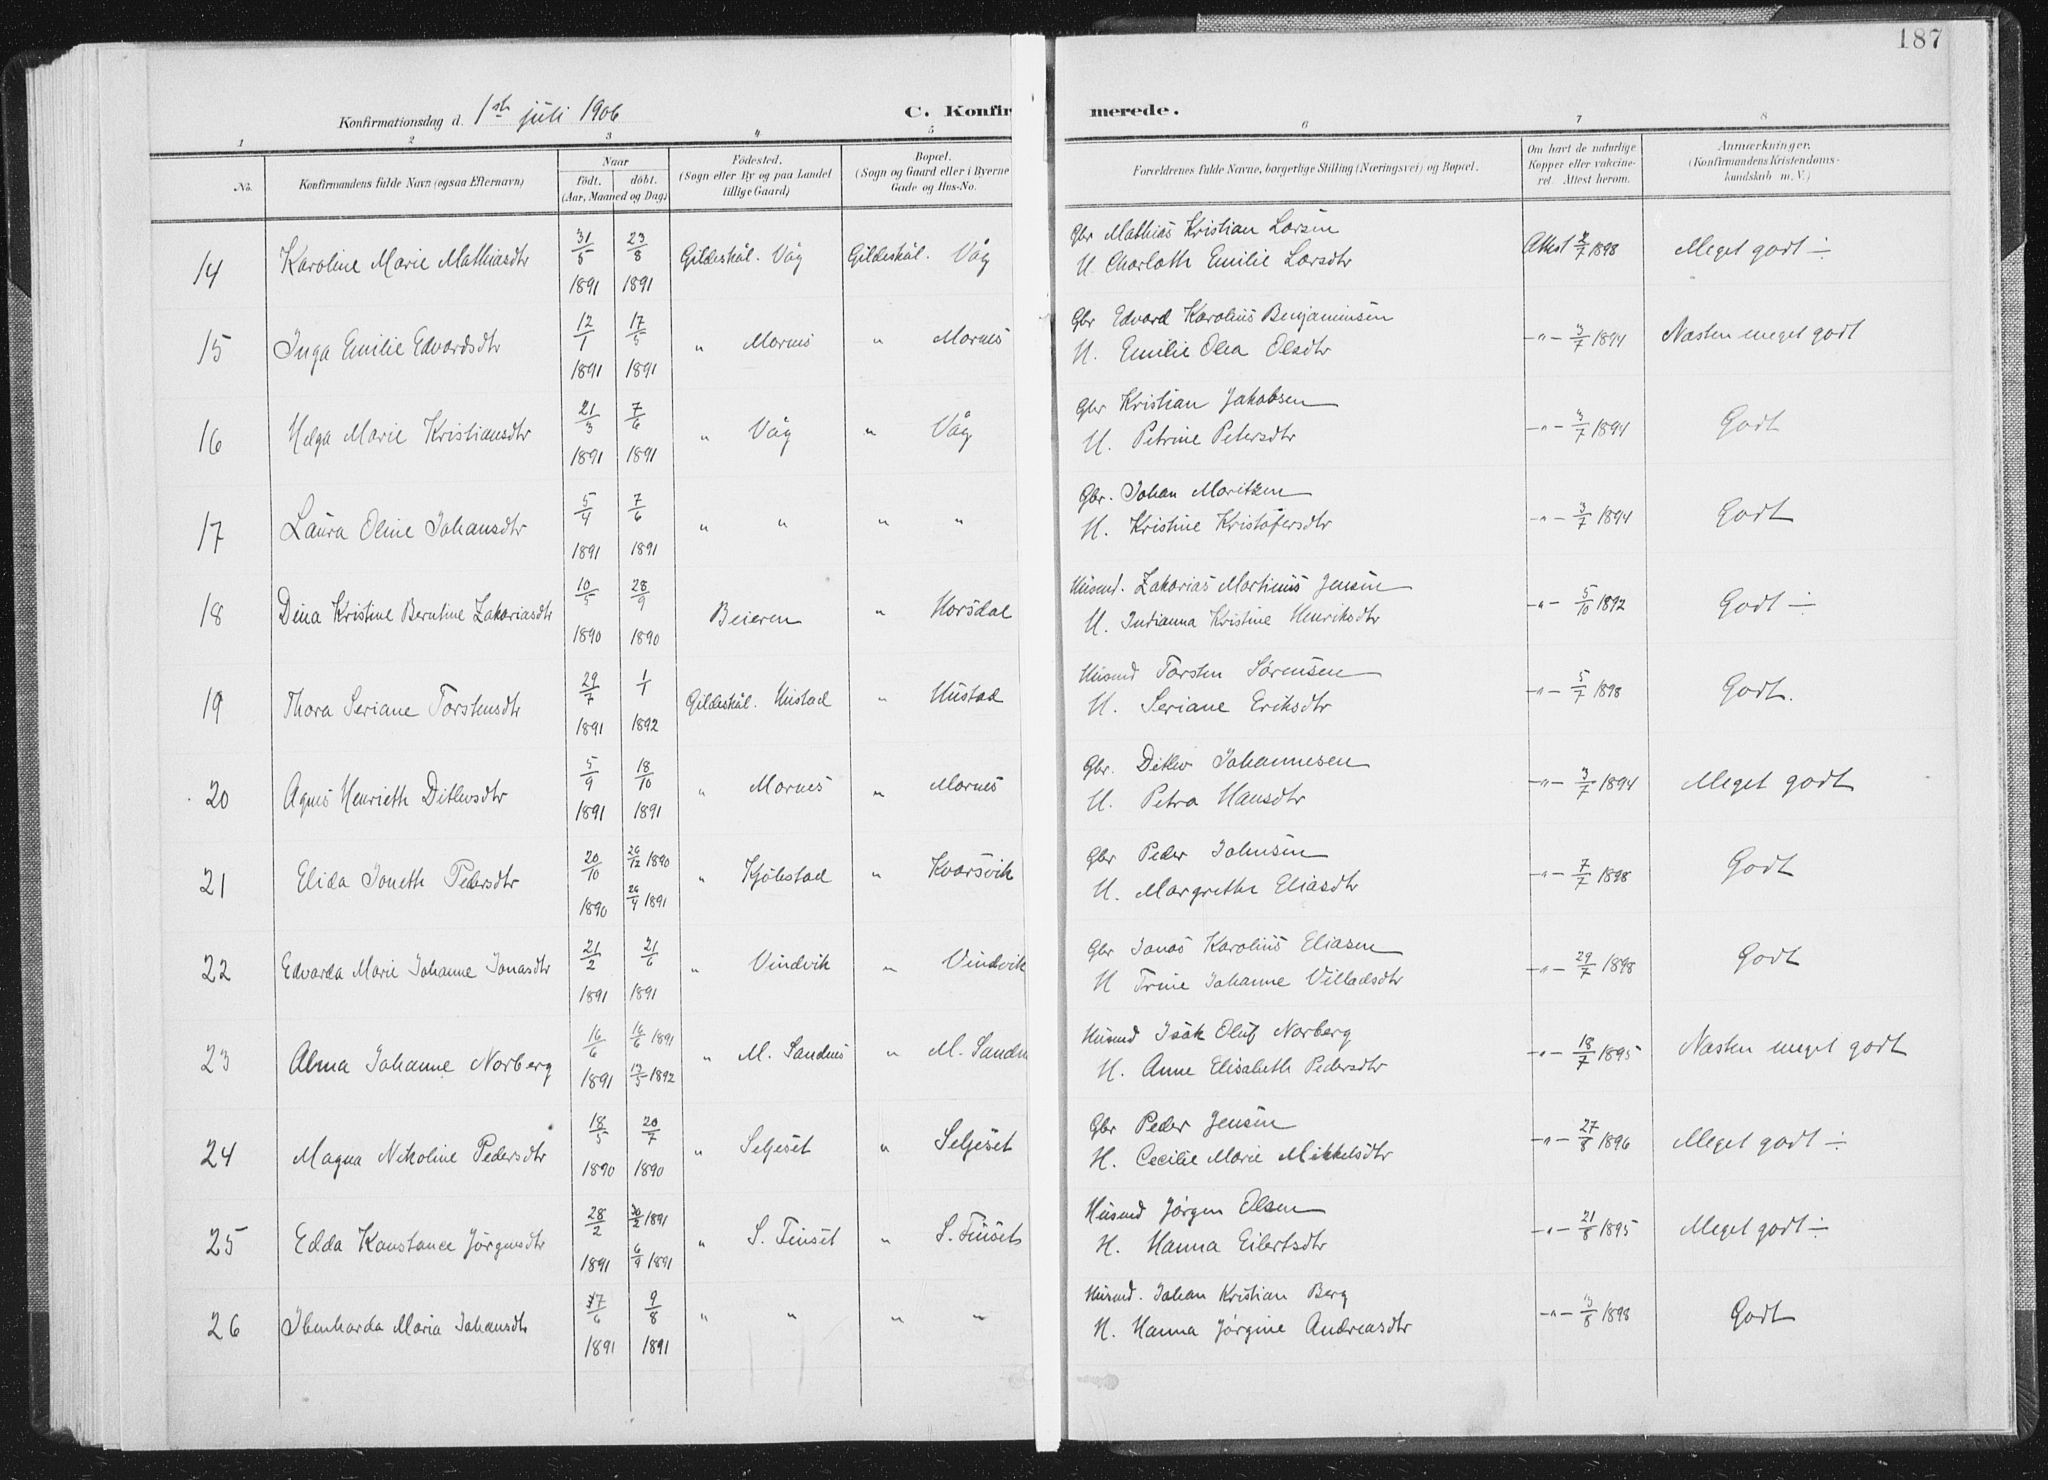 187
Konfirmationsdag d. 1ste juli 1906 C. Konfir merede.
1 2 3 4 5 6 7 8
No. Konfirmandens fulde Navn (ogsaa Efternavn) Naar födt. döbt. (Aar, Maaned og Dag) Födested. (Sogn eller By og paa Landet tillige Gaard) Bopæl. (Sogn og Gaard eller i Byerne Gade og Hus-No. Forældrenes fulde Navne, borgerlige Stilling (Næringsvei) og Bopæl. Om havt de naturlige Kopper eller vaccineret. Attest herom. Anmærkninger. (Konfirmandens Kristendomskundskab m. V.)
14 Karoline Marie Mathiasdtr 31/5 1891 23/8 1891 Gildeskål. Våg Gildeskål. Våg Gbr Mathias Kristian Larsen Attest 1898 Meget godt ÷
H. Charloth Emilie Larsdtr
15 Inga Emilie Edvardsdtr 12/1 1891 17/5 1891 " Mornes " Mornes Gbr Edvard Karolius Benjaminsen -"- 3/7 1894 Næsten meget godt
H. Emilie Olea Olsdtr
16 Helga Marie Kristiansdtr 21/3 1891 7/6 1891 " Våg " Våg Gbr Kristian Jakobsen -"- 3/7 1894 Godt
H. Petrine Petersdtr
17 Laura Oline Johansdtr 5/4 1891 7/6 1891 " " " " Gbr. Johan Moritzen -"- 3/7 1894 Godt
H. Kristine Kristofersdtr
18 Dina Kristine Berntine Zakariasdtr 10/5 1890 28/9 1890 Beieren " Horsdal Husmd. Zakarias Martinus Jensen -"- 5/10 1892 Godt ÷
H. Indianna Kristine Henriksdtr
19 Thora Seriane Torstensdtr 29/7 1891 1/1 1892 Gildeskål. Hustad " Hustad Husmd Torsten Sörensen -"- 5/7 1898 Godt.
H. Seriane Eriksdtr
20 Agnes Henrieth Ditlevsdtr 5/9 1891 18/10 1891 " Mornes " Mornes Gbr. Ditlev Johannesen -"- 3/7 1894 Meget godt
H. Petra Hansdtr
21 Elida Joneth Pedersdtr 20/10 1890 26/12 1890 26/4 1891 " Kjöbstad " Kvarsvik Gbr Peder Johnsen -"- 7/7 1898 Godt
H. Margrethe Eliasdtr
22 Edvarda Marie Johanne Jonasdtr 21/2 1891 21/6 1891 " Vindvik " Vindvik Gbr Jonas Karolius Eliasen -"- 29/7 1898 Godt
H Trine Johanne Villadsdtr
23 Alma Johanne Norberg 16/6 1891 16/6 1891 13/5 1892 " M. Sandnes " M. Sandn Husmd Isak Oluf Norberg -"- 18/7 1895 Næsten meget godt
H. Anne Elisabeth Pedersdtr
24 Magna Nikoline Pedersdtr 18/5 1890 20/7 1890 " Seljeset " Seljeset Gbr Peder Jensen -"- 27/8 1896 Meget godt ÷
H. Cecilie Marie Mikkelsdtr
25 Edda Konstance Jørgensdtr 28/2 1891 1891 6/9 1891 " S. Finset " S. Finset Husmd Jørgen Olsen -"- 21/8 1895 Meget godt ÷
H. Hanna Eilertsdtr
26 Ibenharda Maria Johansdtr 17/6 1891 9/8 1891 " " " " Husmd. Johan Kristian Berg -"- 3/8 1898 Godt
H. Hanna Jørgine Andreasdtr